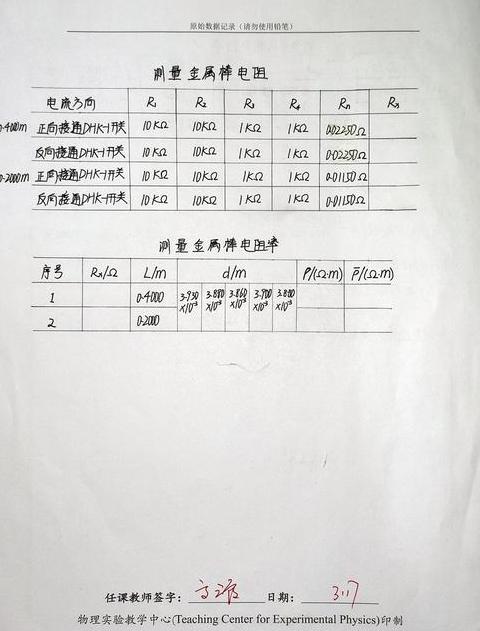 原始数据记录（请勿使用铅笔）
测量金属棒电阻
电流方向 R₁ R₂ R₃ R₄ Rn Rx
0.4000m 正向接通DHK-1开关 10KΩ 10KΩ 1KΩ 1KΩ 0.02250Ω
反向接通DHK-1开关 10KΩ 10KΩ 1KΩ 1KΩ 0.02250Ω
0.2000m 正向接通DHK-1开关 10KΩ 10KΩ 1KΩ 1KΩ 0.01150Ω
反向接通DHK-1开关 10KΩ 10KΩ 1KΩ 1KΩ 0.01150Ω
测量金属棒电阻率
序号 Rx/Ω L/m d/m ρ/(Ω·m) ρ̅/(Ω·m)
1 0.4000 3.930×10⁻³ 3.880×10⁻³ 3.860×10⁻³ 3.900×10⁻³
2 0.2000
任课教师签字： 日期： 3.17
物理实验教学中心(Teaching Center for Experimental Physics)印制